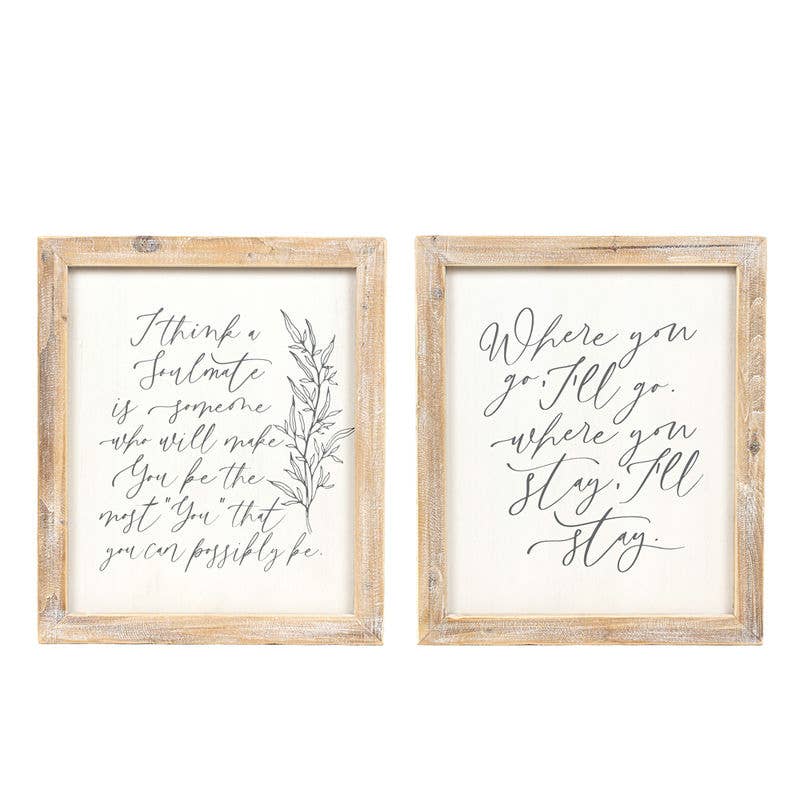 I think a
Soulmate
is someone
who will make
You be the
most "You" that
you can possibly be.
Where you
go, I'll go.
where you
stay, I'll
stay.